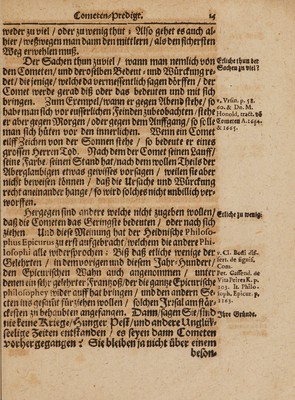 Cometen-Predigt.
weder zu viel / oder zu wenig thut: Also gehet es auch al-
hier / weßwegen man dann den mittlern / als den sichersten
Weg erwehlen muß.
Der Sachen thun zu viel / wann man nemlich von
den Cometen / und derselben Bedeut- und Würckung re-
det / die jenige / welche da vermessentlich sagen dörffen / der
Comet werde gerad diß oder das bedeuten und mit sich
bringen. Zum Exempel / wann er gegen Abend stehe / so
habe man sich vor eusserlichen Feinden zubeobachten / stehe
er aber gegen Morgen / oder gegen dem Auffgang / so solle
man sich hüten vor den innerlichen. Wenn ein Comet
eilff Zeichen von der Sonnen stehe / so bedeute er eines
grossen Herren Tod. Nach dem der Comet seinen Lauff /
seine Farbe / seinen Stand hat / nach dem wollen Theils der
Aberglaubigen etwas gewisses vorsagen / weilen sie aber
nicht beweisen können / daß die Ursache und Würckung
recht an einander hange / so wird solches nicht unbillich ver-
worffen.
Hergegen sind andere welche nicht zugeben wollen /
daß die Cometen das Geringste bedeuten / oder nach sich
ziehen. Und diese Meinung hat der Heidnische Philoso-
phus Epicurus zu erst aufgebracht / welchem die andere Phi-
losophi alle widersprochen: Biß daß etliche wenige der
Gelehrten / in dem vorigen und diesem Jahr-Hundert /
den Epicurischen Wahn auch angenommen / unter
denen ein sehr gelehrter Frantzoß / der die gantze Epicurische
philosophey wider auff bat bringen / und den andern Se-
cten ins gesamt fürziehen wollen / solchen Irrsal am stär-
ckesten zu behaubten angefangen. Dann / sagen Sie / sind
nie keine Kriege / Hunger / Pest / und andere Unglück-
seelige Zeiten entstanden / es seyen dann Cometen
vorher gegangen? Sie bleiben ja nicht über einem
beson-
Etliche thun der
Sachen zu viel?
v. Ursin. p. 58.
60. & Dn. M.
Honold, tract. vō
Cometen A. 1654.
& 1665.
Etliche zu wenig:
v. Cl. Boſſ diſ-
ſert. de ſignif.
Com.
Pet. Gaſſend. de
Vita Peires K. p.
103. It. Philo-
ſoph. Epicur. p.
1125.
Ihre Gründe.